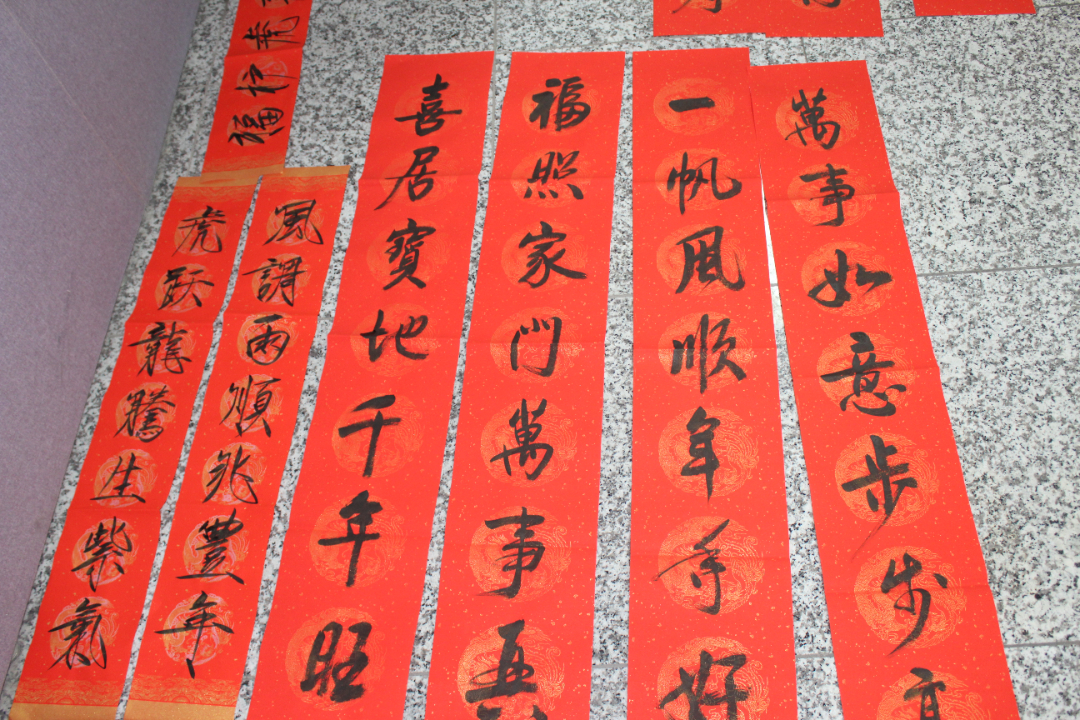 福
虎跃龍騰生紫氣
風調雨順兆豐年
喜居寶地千年旺
福照家門萬事興
一帆風順年年好
萬事如意步步高